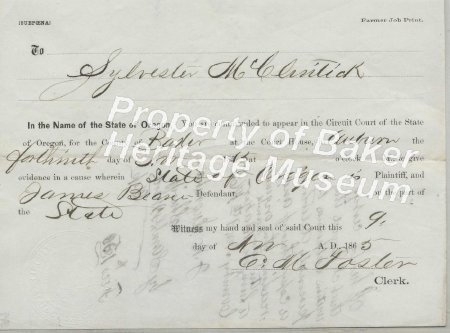 (SUBPŒNA) Farmer Job Print.
To
Sylvester McClintick
In the Name of the State of Oregon: You are commanded to appear in the Circuit Court of the State
of Oregon, for the County of Baker at the Court House, Auburn the
forthwith day of at o'clock to give
evidence in a cause wherein State of Oregon is Plaintiff, and
James Beane Defendant, on the part of
the State
Witness my hand and seal of said Court this 9,
day of Nov A. D., 1865
C. M. Foster
Clerk.
Property of Baker
Heritage Museum